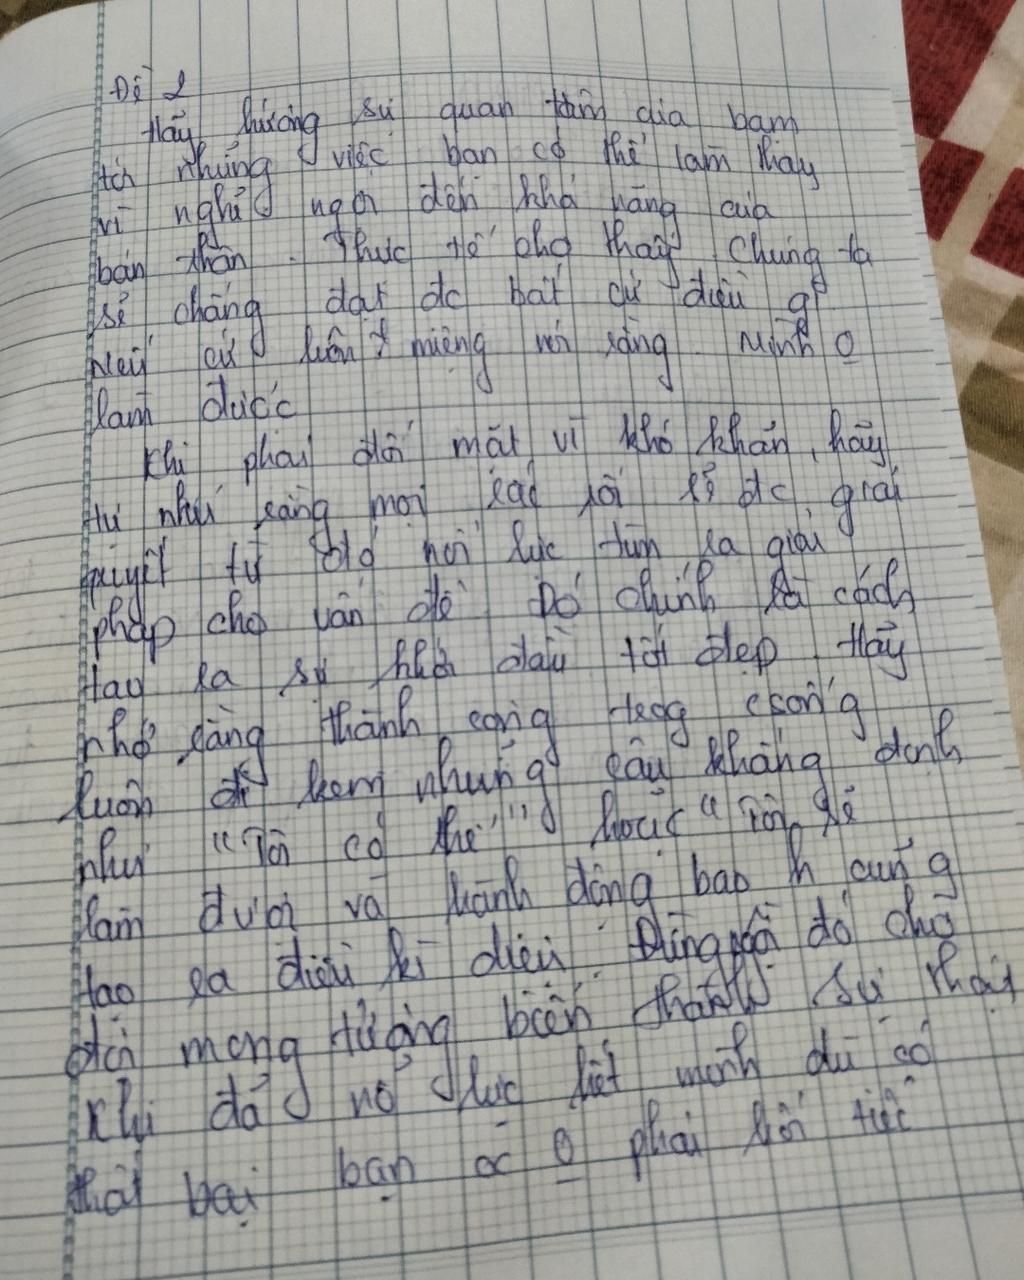 Đề 2
Hãy hướng sự quan tâm của bạm
tới những việc bạn có thể làm thay
vì nghĩ ngợi đến khả năng của
bản thân. Thực tế cho thấy chúng ta
sẽ chẳng đạt đc bất cứ điều gì
Nếu cứ luôn miệng nói rằng Mình o
làm được
Khi phải đối mặt vì khó khăn, hãy
tự nhủ rằng mọi rắc rối sẽ đc giải
quyết từ đó nỗi lực tìm ra giải
pháp cho vấn đề Đó chính là cách
tạo ra sự khởi đầu tốt đẹp. Hãy
nhớ rằng thành công trog csống
luôn đi kèm những câu khẳng định
như "Tôi có thể" hoặc "Tôi sẽ
làm được và hành động bao h cũng
tạo ra điều kì diệu. Đừng đó chờ
đợi mong tưởng biến thành sự thật
Khi đã nổ lực hết mình dù có
thất bại bạn cx o phải hối tiếc